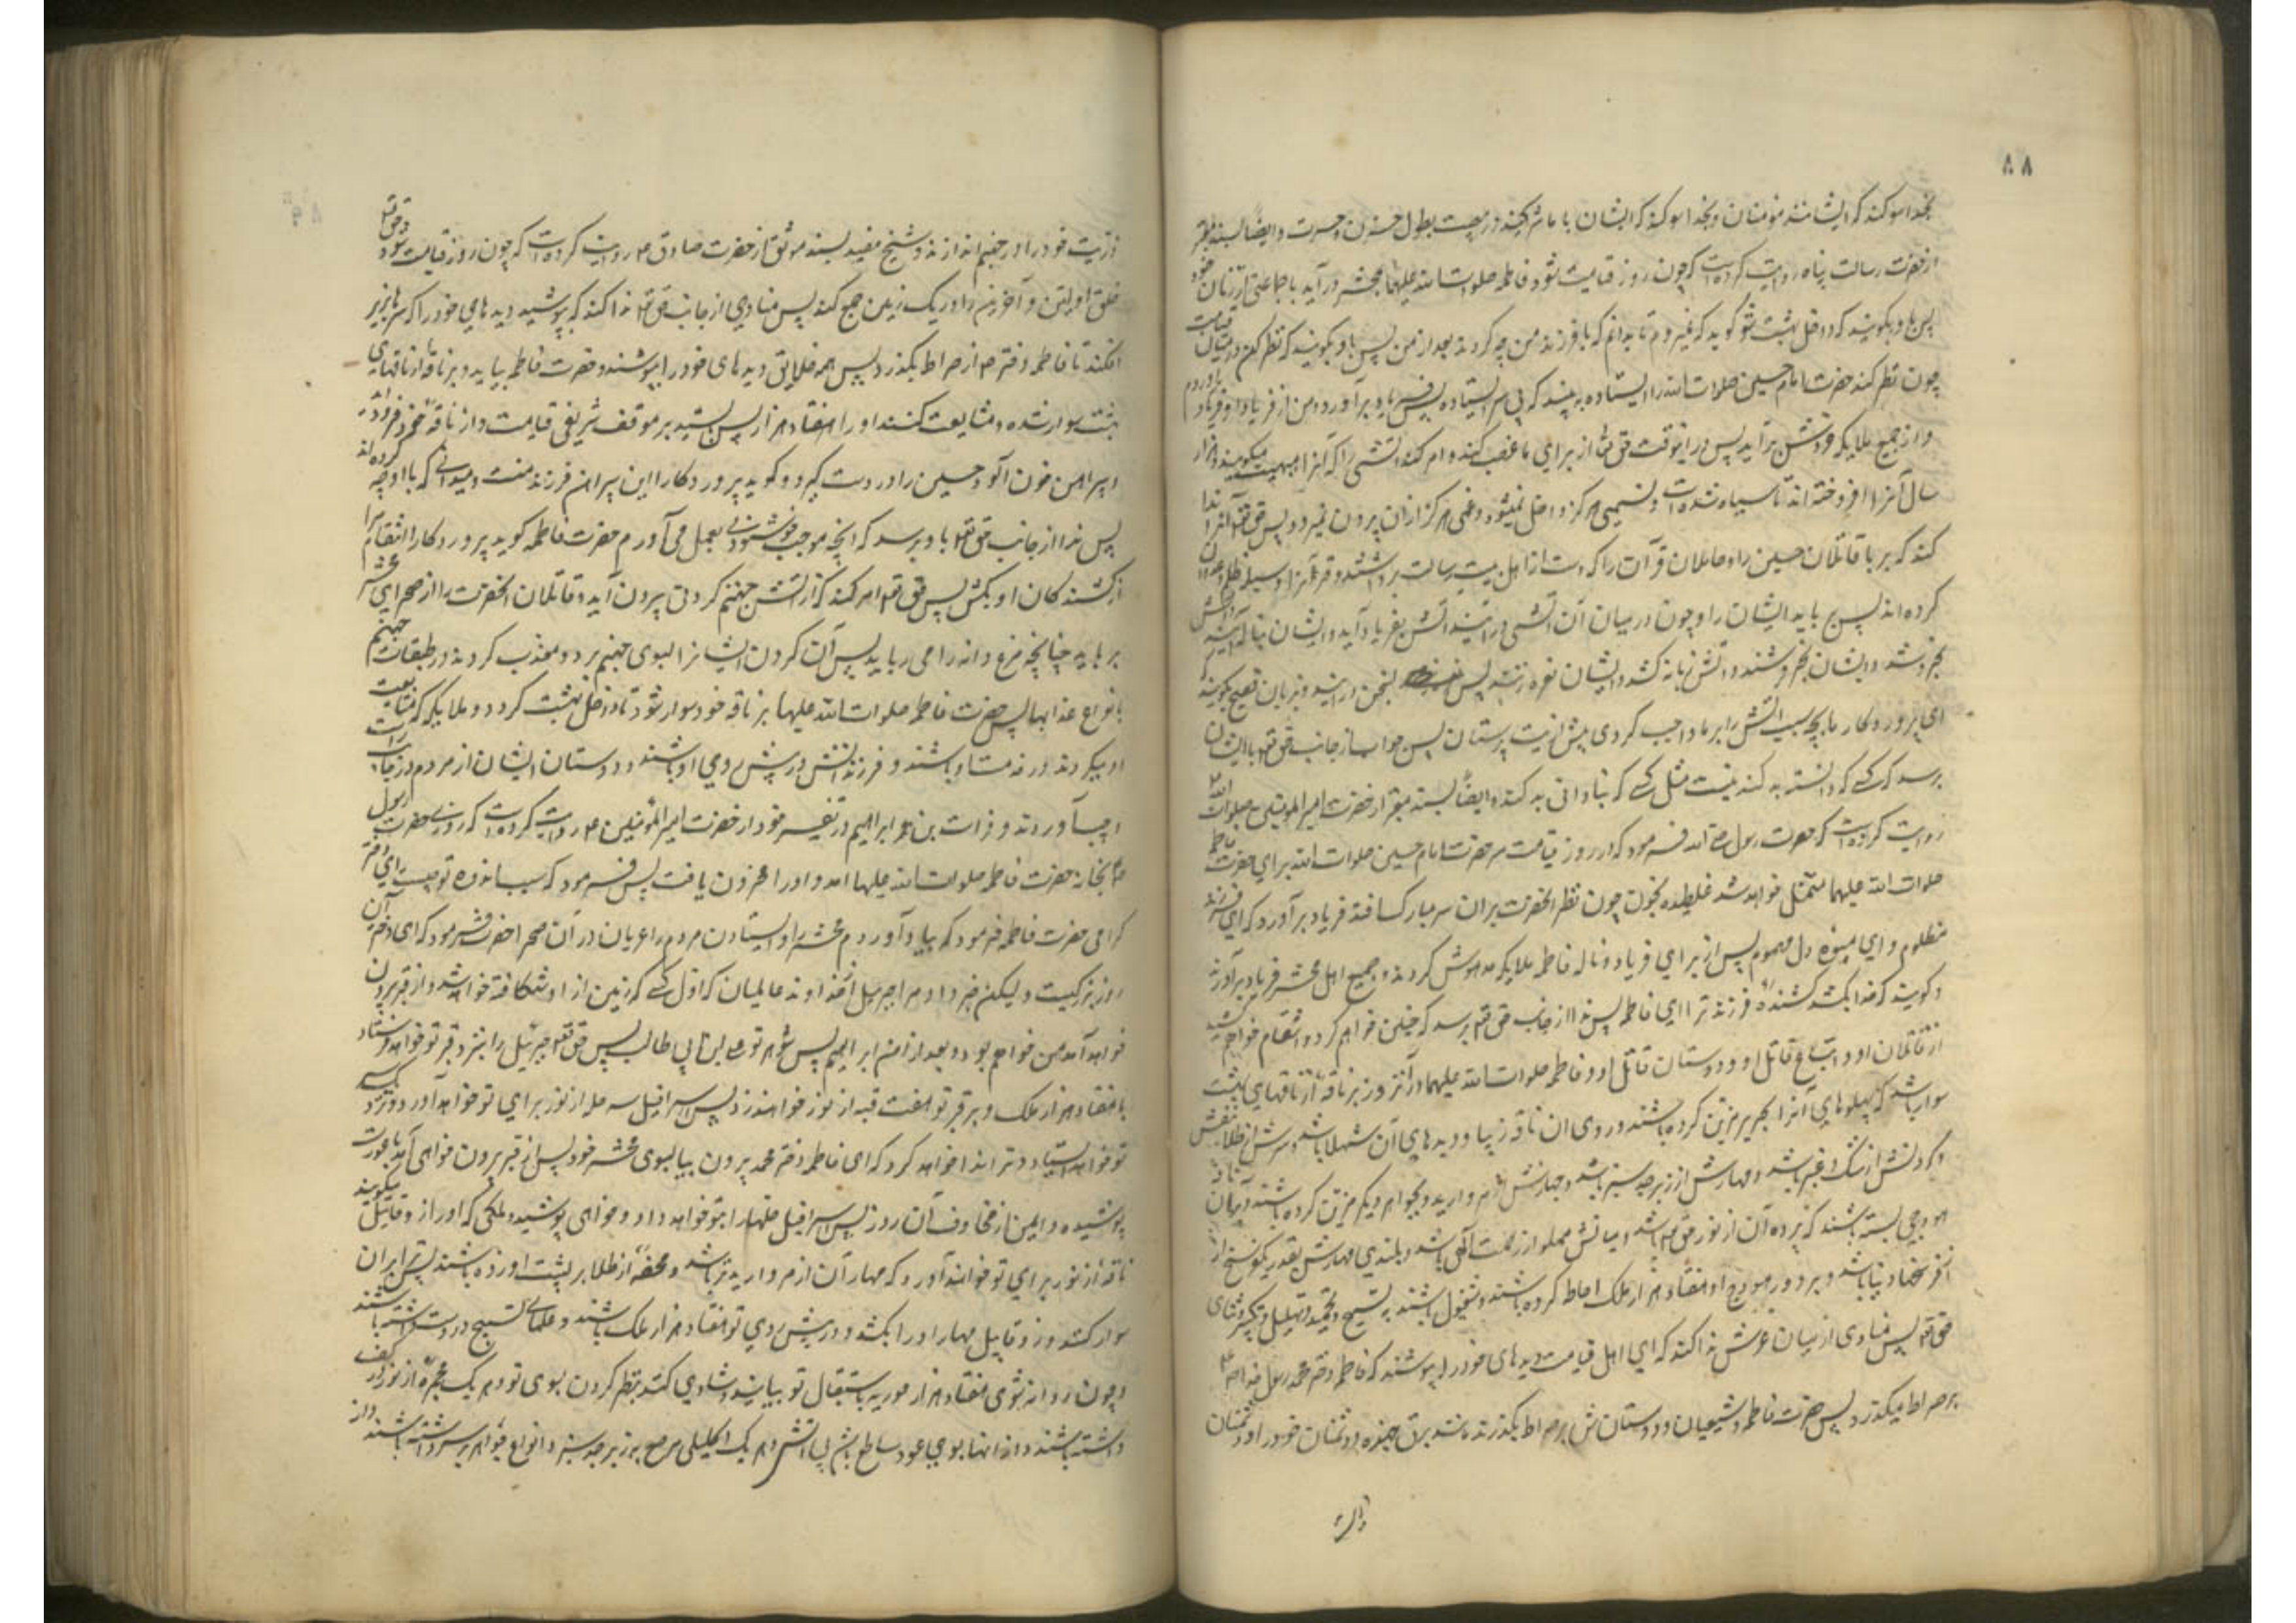 ۸۸
بخدا سوکند که ایشانند مؤمنان و بخدا سوکند که ایشان با ما شریکند در مصیبت بطول حزن و حسرت و ایضا بسند معتبر
از حضرت رسالت پناه روایت کرده است که چون روز قیامت شود فاطمه صلوات الله علیها بمحشر درآید با جماعتی از زنان خود
پس باو بکویند که داخل بهشت شو کوید که نمیروم تا بدانم که با فرزند من چه کردند بعد از من پس باو بکویند که نظر کن در میان قیامت
چون نظر کند حضرت امام حسین صلوات الله را ایستاده به بیند که بی سر ایستاده پس فریاد برآورد و من از فریاد او فریاد برآوردم
و از جمیع ملایکه خروش برآید پس در آنوقت حق تعا از برای ما غضب کند و امر کند آتشی را که آنرا هبهب میکویند و هزار
سال آنرا افروخته اند تا سیاه شده است و نسیمی هرکز داخل نمیشود و غمی هرکز از آن بیرون نمیرود پس حق تعا آنرا ندا
کند که بربا قاتلان حسین را و حاملان قرآن را که دست از اهل بیت رسالت برداشتند و قرآنرا وسیله ظلم و عدوان
کرده اند پس برباید ایشان را و چون در میان آن آتش درآیند آتش بفریاد آید و ایشان بناله آیند و آتش
بخروشد و ایشان بخروشند و آتش زبانه کشد و ایشان نعره زنند پس بسخن درآیند و بزبان فصیح بکویند که
ای پروردکار ما بچه سبب آتش را بر ما واجب کردی پیش از بت پرستان پس جواب از جانب حق تعا بایشان
برسد که کسی که دانسته بد کند نیست مثل کسی که بنادانی بد کند و ایضا بسند معتبر از حضرت امیر المؤمنین صلوات الله
روایت کرده است که حضرت رسول صلی الله فرمود که در روز قیامت سر حضرت امام حسین صلوات الله برای حضرت فاطمه
صلوات الله علیهما متمثل خواهد شد غلطیده بخون چون نظر آنحضرت بران سر مبارک افتد فریاد برآورد که ای فرزند
مظلوم و ای میوه دل مهموم پس از برای فریاد و ناله فاطمه ملایکه مدهوش کردند و جمیع اهل محشر فریاد برآورند
و کویند که خدا بکشد کشنده فرزند ترا ای فاطمه پس ندا از جانب حق تعا برسد که چنین خواهم کرد و انتقام خواهم کشید
از قاتلان او و اتباع قاتل او و دوستان قاتل او و فاطمه صلوات الله علیهما در آنروز بر ناقه از ناقهای بهشت
سوار باشد که پهلوهای آنرا بحریر مزین کرده باشند و روی ان ناقه زیبا و دیدهای آن شهلا باشد و سرش از طلای
و کردنش از مشک و عنبر باشد و مهارش از زبرجد سبز باشد و جهازش از مروارید و بجواهر دیکر مزین کرده باشند و برآن ناقه
هودجی بسته باشند که پرده آن از نور حق تعا باشد و میانش مملو از رحمت الهی باشد و بلندی مهارش بقدر یکفرسخ از
فرسخهای دنیا باشد و بر دور هودج او هفتاد هزار ملک احاطه کرده باشند و مشغول باشند به تسبیح و تحمید و تهلیل و تکبیر و ثنای
حق تعا پس منادی از میان عرش ندا کند که ای اهل قیامت دیدهای خود را بپوشند که فاطمه دختر محمد رسول خدا صم
بر صراط میکذرد پس حضرت فاطمه و شیعیان و دوستانش بر صراط بکذرند مانند برق جهنده و دشمنان خود را و دشمنان
ذریت خود را در جهنم اندازند و شیخ مفید بسند موثق از حضرت صادق ع روایت کرده است که چون روز قیامت شود حق تعا
خلق اولین و آخرین را در یک زمین جمع کند پس منادی از جانب حق تعا ندا کند که بپوشید دیدهای خود را که سرها بزیر
افکنند تا فاطمه دختر محمد از صراط بکذرد پس همه خلایق دیدهای خود را بپوشند و حضرت فاطمه بیاید و بر ناقه از ناقهای
بهشت سوار شده و مشایعت کنند او را هفتاد هزار ملک پس بایستد بر موقف شریفی قیامت و از ناقه خود فرود آید
و پیراهن خون آلود حسین را در دست کیرد و کوید پروردکارا این پیراهن فرزند منست و میدانی که با او چه کرده اند
پس ندا از جانب حق تعا باو برسد که آنچه موجب خوشنودی تست بعمل می آورم حضرت فاطمه کوید پروردکارا انتقام مرا
از کشندکان او بکش پس حق تعا امر کند که از آتش جهنم کردنی بیرون آید و قاتلان آنحضرت را از صحرای محشر
برباید چنانچه مرغ دانه را می رباید پس آن کردن ایشانرا بسوی جهنم برد و معذب کردند در طبقات جهنم
بانواع عذابها پس حضرت فاطمه صلوات الله علیها بر ناقه خود سوار شود تا داخل بهشت کردد و ملایکه که مشایعت
او میکردند در خدمت او باشند و فرزندانش در پیش روی او باشند و دوستان ایشان از مردم در جانب راست
او بیاورند و فرات بن ابراهیم در تفسیر خود از حضرت امیر المؤمنین ع روایت کرده است که روزی حضرت رسول
صم بخانه حضرت فاطمه صلوات الله علیها آمد و او را محزون یافت پس فرمود که سبب اندوه تو چیست ای دختر
کرامی حضرت فاطمه فرمود که بیاد آوردم محشر را و ایستادن مردم را عریان در آن صحرا حضرت فرمود که ای دختر آن
روز بزرکیست و لیکن خبر داد مرا جبرئیل از خداوند عالمیان که اول کسی که زمین از او شکافته خواهد شد و از قبر بیرون
خواهد آمد من خواهم بود و بعد از من ابراهیم پس شوهر تو علی بن ابی طالب پس حق تعا جبرئیل را بنزد قبر تو خواهد فرستاد
با هفتاد هزار ملک و بر قبر تو هفت قبه از نور خواهند زد پس اسرافیل سه حله از نور برای تو خواهد آورد و نزد سر
تو خواهد ایستاد و ترا ندا خواهد کرد که ای فاطمه دختر محمد بیرون بیا بسوی محشر خود پس از قبر بیرون خواهی آمد با عورت
پوشیده و ایمن از مخاوف آن روز پس اسرافیل حلها را بتو خواهد داد و خواهی پوشید و ملکی که او را زوقابیل میکویند
ناقه از نور برای تو خواهد آورد که مهار آن از مروارید تر باشد و محفه از طلا بر پشت او زده باشند پس ترا بران
سوار کند و زوقابیل مهار او را بکشد و در پیش روی تو هفتاد هزار ملک باشند و علمهای تسبیح در دست داشته باشند
و چون روانه شوی هفتاد هزار حوریه باستقبال تو بیایند و شادی کنند بنظر کردن بسوی تو و هر یک مجمره از نور در کف
داشته باشند و از آنها بوی عود ساطع باشد بی آتش و هر یک اکلیلی مرصع بزبرجد سبز و انواع جواهر بر سر داشته باشند